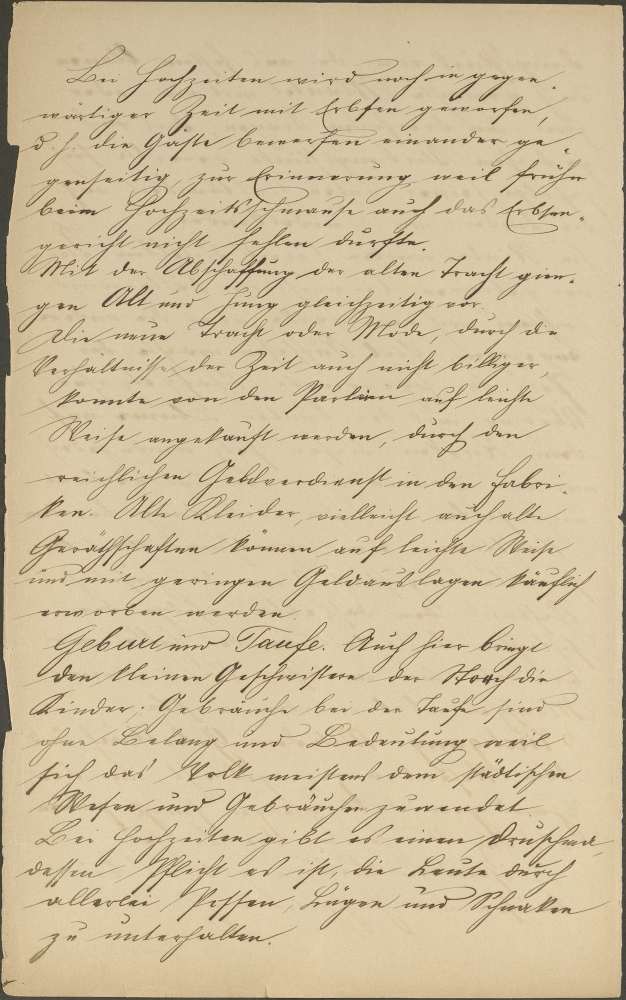 Bei Hochzeiten wird noch in gegen-
wärtiger Zeit mit Erbsen geworfen,
d. h. die Gäste bewerfen einander ge-
genseitig, zur Erinnerung weil früher
beim Hochzeitsschmause auch das Erbsen-
gericht nicht fehlen durfte.
Mit der Abschaffung der alten Tracht gien-
gen Alt und Jung gleichzeitig vor.
Die neue Tracht oder Mode, durch die
Verhältnisse der Zeit auch nicht billiger,
konnte von den Partien auf leichte
Weise angekauft werden, durch den
reichlichen Geldverdienst in den Fabri-
ken. Alte Kleider, vielleicht auch alte
Geräthschaften können auf leichte Weise
und mit geringen Geldauslagen käuflich
erworben werden.
Geburt und Taufe. Auch hier bringt
den kleinen Geschwistern der Storch die
Kinder; Gebräuche bei der Taufe sind
ohne Belang und Bedeutung weil
sich das Volk meistens dem städtischen
Wesen und Gebräuchen zuwendet.
Bei Hochzeiten gibt es einen Druschma,
dessen Pflicht es ist, die Leute durch
allerlei Possen, Lügen und Schnaken
zu unterhalten.